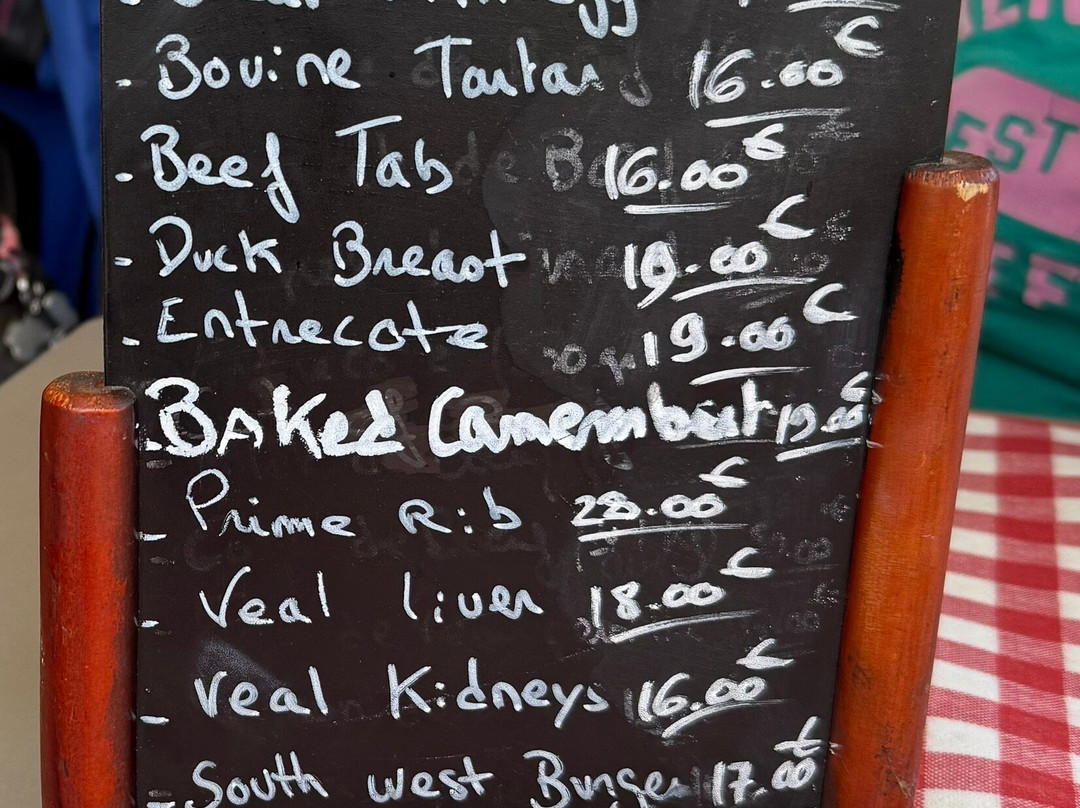 - Bovine Tartar 16.00€
- Beef Tab 16.00€
- Duck Breast 19.00€
- Entrecote 19.00€
- BAKed Camembert 19.00€
- Prime Rib 28.00€
- Veal liver 18.00€
- Veal Kidneys 16.00€
- South west Burger 17.00€
EST